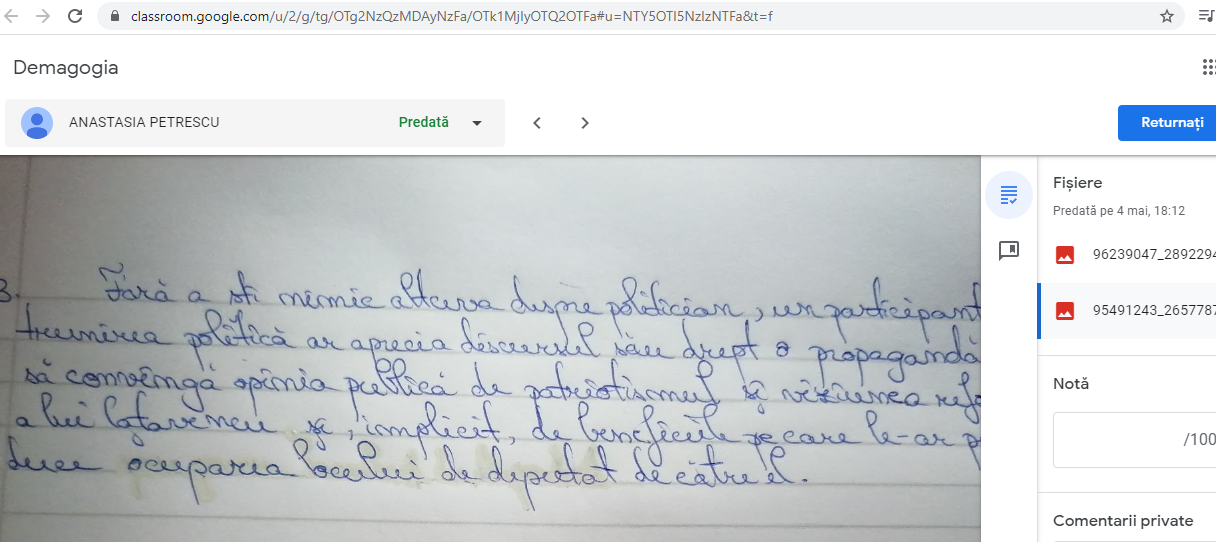 classroom.google.com/u/2/g/tg/OTg2NzQzMDAyNzFa/OTk1MjIyOTQ2OTFa#u=NTY5OTI5NzIzNTFa&t=f
Demagogia
ANASTASIA PETRESCU Predată
Returnați
3. Fără a ști nimic altceva despre politician, un participant
treunirea politică ar aprecia discursul său drept o propagandă
să convingă opinia publică de patriotismul și viziunea
a lui Cațavencu și, implicit, de beneficiile pe care le-ar
duce ocuparea locului de deputat de către el.
Fișiere
Predată pe 4 mai, 18:12
96239047_2892294
95491243_2657787
Notă
/100
Comentarii private